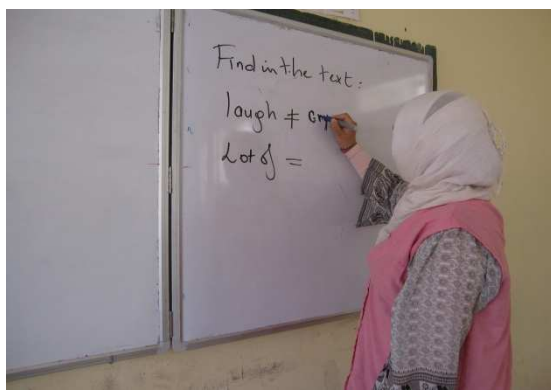 Find in the text :
laugh ≠ cry
Lot of =